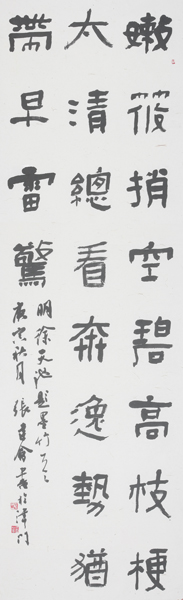 嫩篠捎空碧高枝梗
太清總看奔逸勢猶
帶早雷驚
明徐天池題墨竹一首
庚寅秋月張建會書於津門